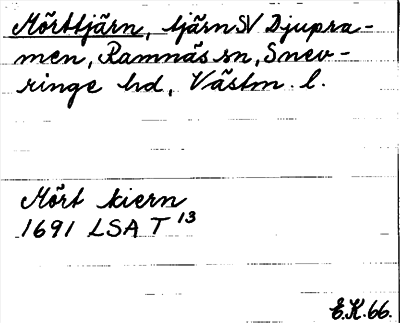 Mörttjärn, tjärn SV Djupra-
men, Ramnäs sn, Snev-
ringe hd, Västm. l.
Mört kiern
1691 LSA T 13
E.K.66.